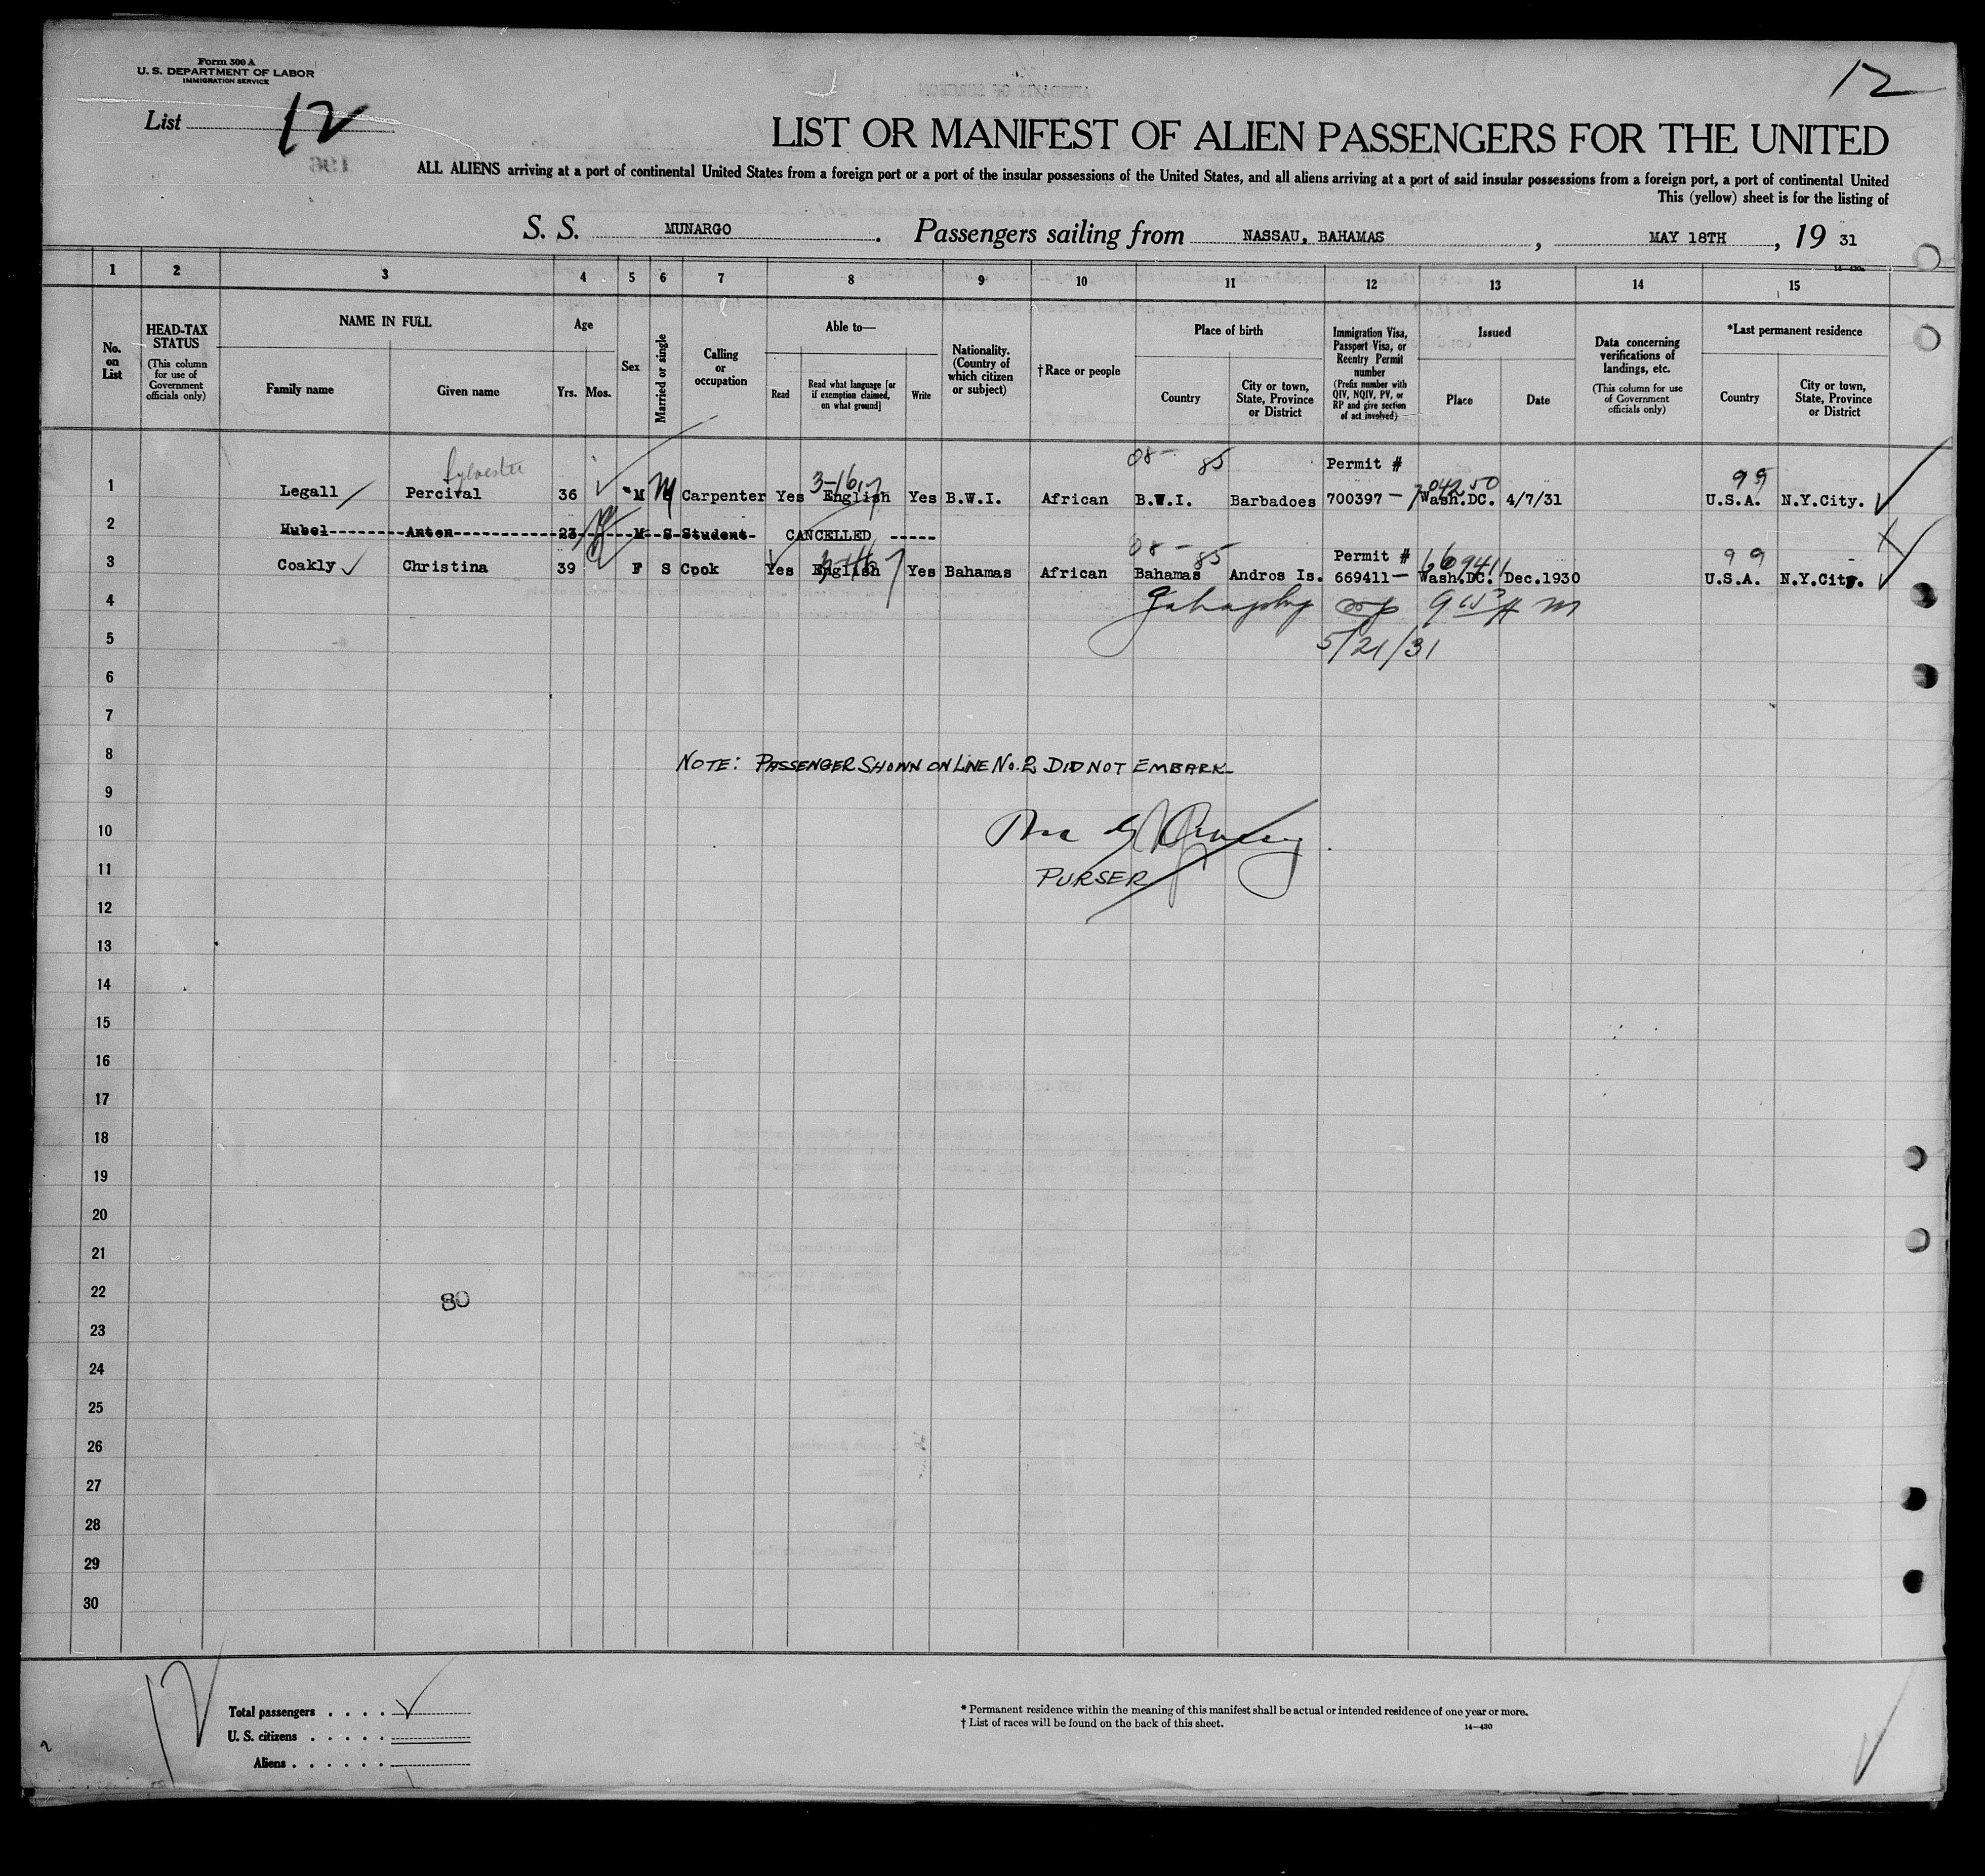 Form 500 A
U. S. DEPARTMENT OF LABOR
IMMIGRATION SERVICE
12
List 12
LIST OR MANIFEST OF ALIEN PASSENGERS FOR THE UNITED
ALL ALIENS arriving at a port of continental United States from a foreign port or a port of the insular possessions of the United States, and all aliens arriving at a port of said insular possessions from a foreign port, a port of continental United
This (yellow) sheet is for the listing of
S. S. MUNARGO. Passengers sailing from NASSAU, BAHAMAS, MAY 18TH, 19 31
1 2 3 4 5 6 7 8 9 10 11 12 13 14 15
No. on List
HEAD-TAX STATUS (This column for use of Government officials only)
NAME IN FULL
Family name Given name
Age
Yrs. Mos.
Sex
Married or single
Calling or occupation
Able to—
Read Read what language [or if exemption claimed, on what ground] Write
Nationality. (Country of which citizen or subject)
†Race or people
Place of birth
Country City or town, State, Province or District
Immigration Visa, Passport Visa, or Reentry Permit number (Prefix number with QIV, NQIV, PV, or RP and give section of act involved)
Issued
Place Date
Data concerning verifications of landings, etc. (This column for use of Government officials only)
*Last permanent residence
Country City or town, State, Province or District
Sylvester 08- 85 Permit #
3-16 99
1 Legall Percival 36 M M Carpenter Yes English Yes B.W.I. African B.W.I. Barbadoes 700397 - Wash.DC. 4/7/31 U.S.A. N.Y.City.
2 Hubel Anton 23 M S Student CANCELLED
08- 85 Permit # 669411 99
3 Coakly Christina 39 F S Cook Yes English Yes Bahamas African Bahamas Andros Is. 669411 - Wash.DC. Dec.1930 U.S.A. N.Y.City.
4
5 5/21/31
6
7
8 NOTE: PASSENGER SHOWN ON LINE NO. 2 DID NOT EMBARK
9
10
11 PURSER
12
13
14
15
16
17
18
19
20
21
22 80
23
24
25
26
27
28
29
30
12
Total passengers . . . .
U. S. citizens . . . . .
Aliens . . . . . .
* Permanent residence within the meaning of this manifest shall be actual or intended residence of one year or more.
† List of races will be found on the back of this sheet. 14—430